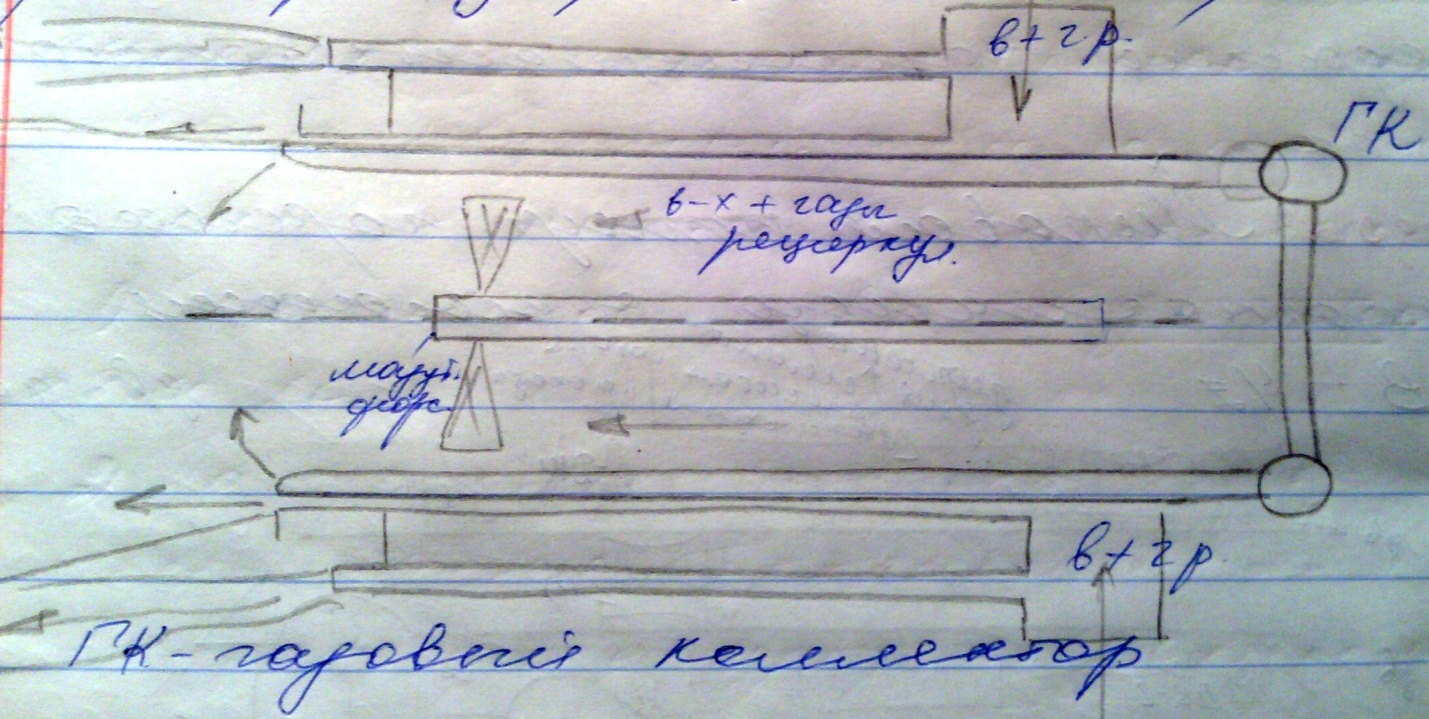 в+г.р.
ГК
в-х + газы
рециркул.
мазут.
форс.
в+гр
ГК - газовый коллектор